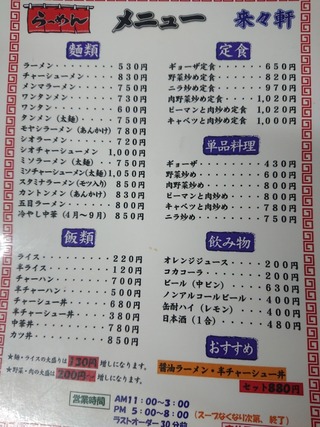 らーめん メニュー 来々軒
麺類
ラーメン 530円
チャーシューメン 830円
メンマラーメン 750円
ワンタンメン 730円
ワンタン 600円
タンメン(太麺) 750円
モヤシラーメン(あんかけ) 780円
シオラーメン 720円
シオチャーシューメン 1,000円
ミソラーメン(太麺) 750円
ミソチャーシューメン(太麺) 1,050円
スタミナラーメン(モツ入り) 850円
カントンメン(あんかけ) 850円
五目ラーメン 800円
冷やし中華(4月〜9月) 850円
飯類
ライス 220円
半ライス 120円
チャーハン 700円
半チャーハン 500円
チャーシュー丼 680円
半チャーシュー丼 380円
中華丼 780円
カツ丼 850円
★麺・ライスの大盛りは130円増しになります。
★野菜・肉の大盛は200円増しになります。
定食
ギョーザ定食 650円
野菜炒め定食 820円
ニラ炒め定食 970円
肉野菜炒め定食 1,020円
ピーマンと肉炒め定食 1,020円
キャベツと肉炒め定食 1,000円
単品料理
ギョーザ 430円
野菜炒め 600円
肉野菜炒め 800円
ピーマンと肉炒め 800円
キャベツと肉炒め 780円
ニラ炒め 750円
飲み物
オレンジジュース 200円
コカコーラ 200円
ビール(中ビン) 630円
ノンアルコールビール 400円
缶酎ハイ(レモン) 400円
日本酒(1合) 480円
おすすめ
醤油ラーメン・半チャーシュー丼
セット880円
営業時間 AM11:00〜3:00
PM 5:00〜8:00(スープなくなり次第、終了)
ラストオーダー30分前